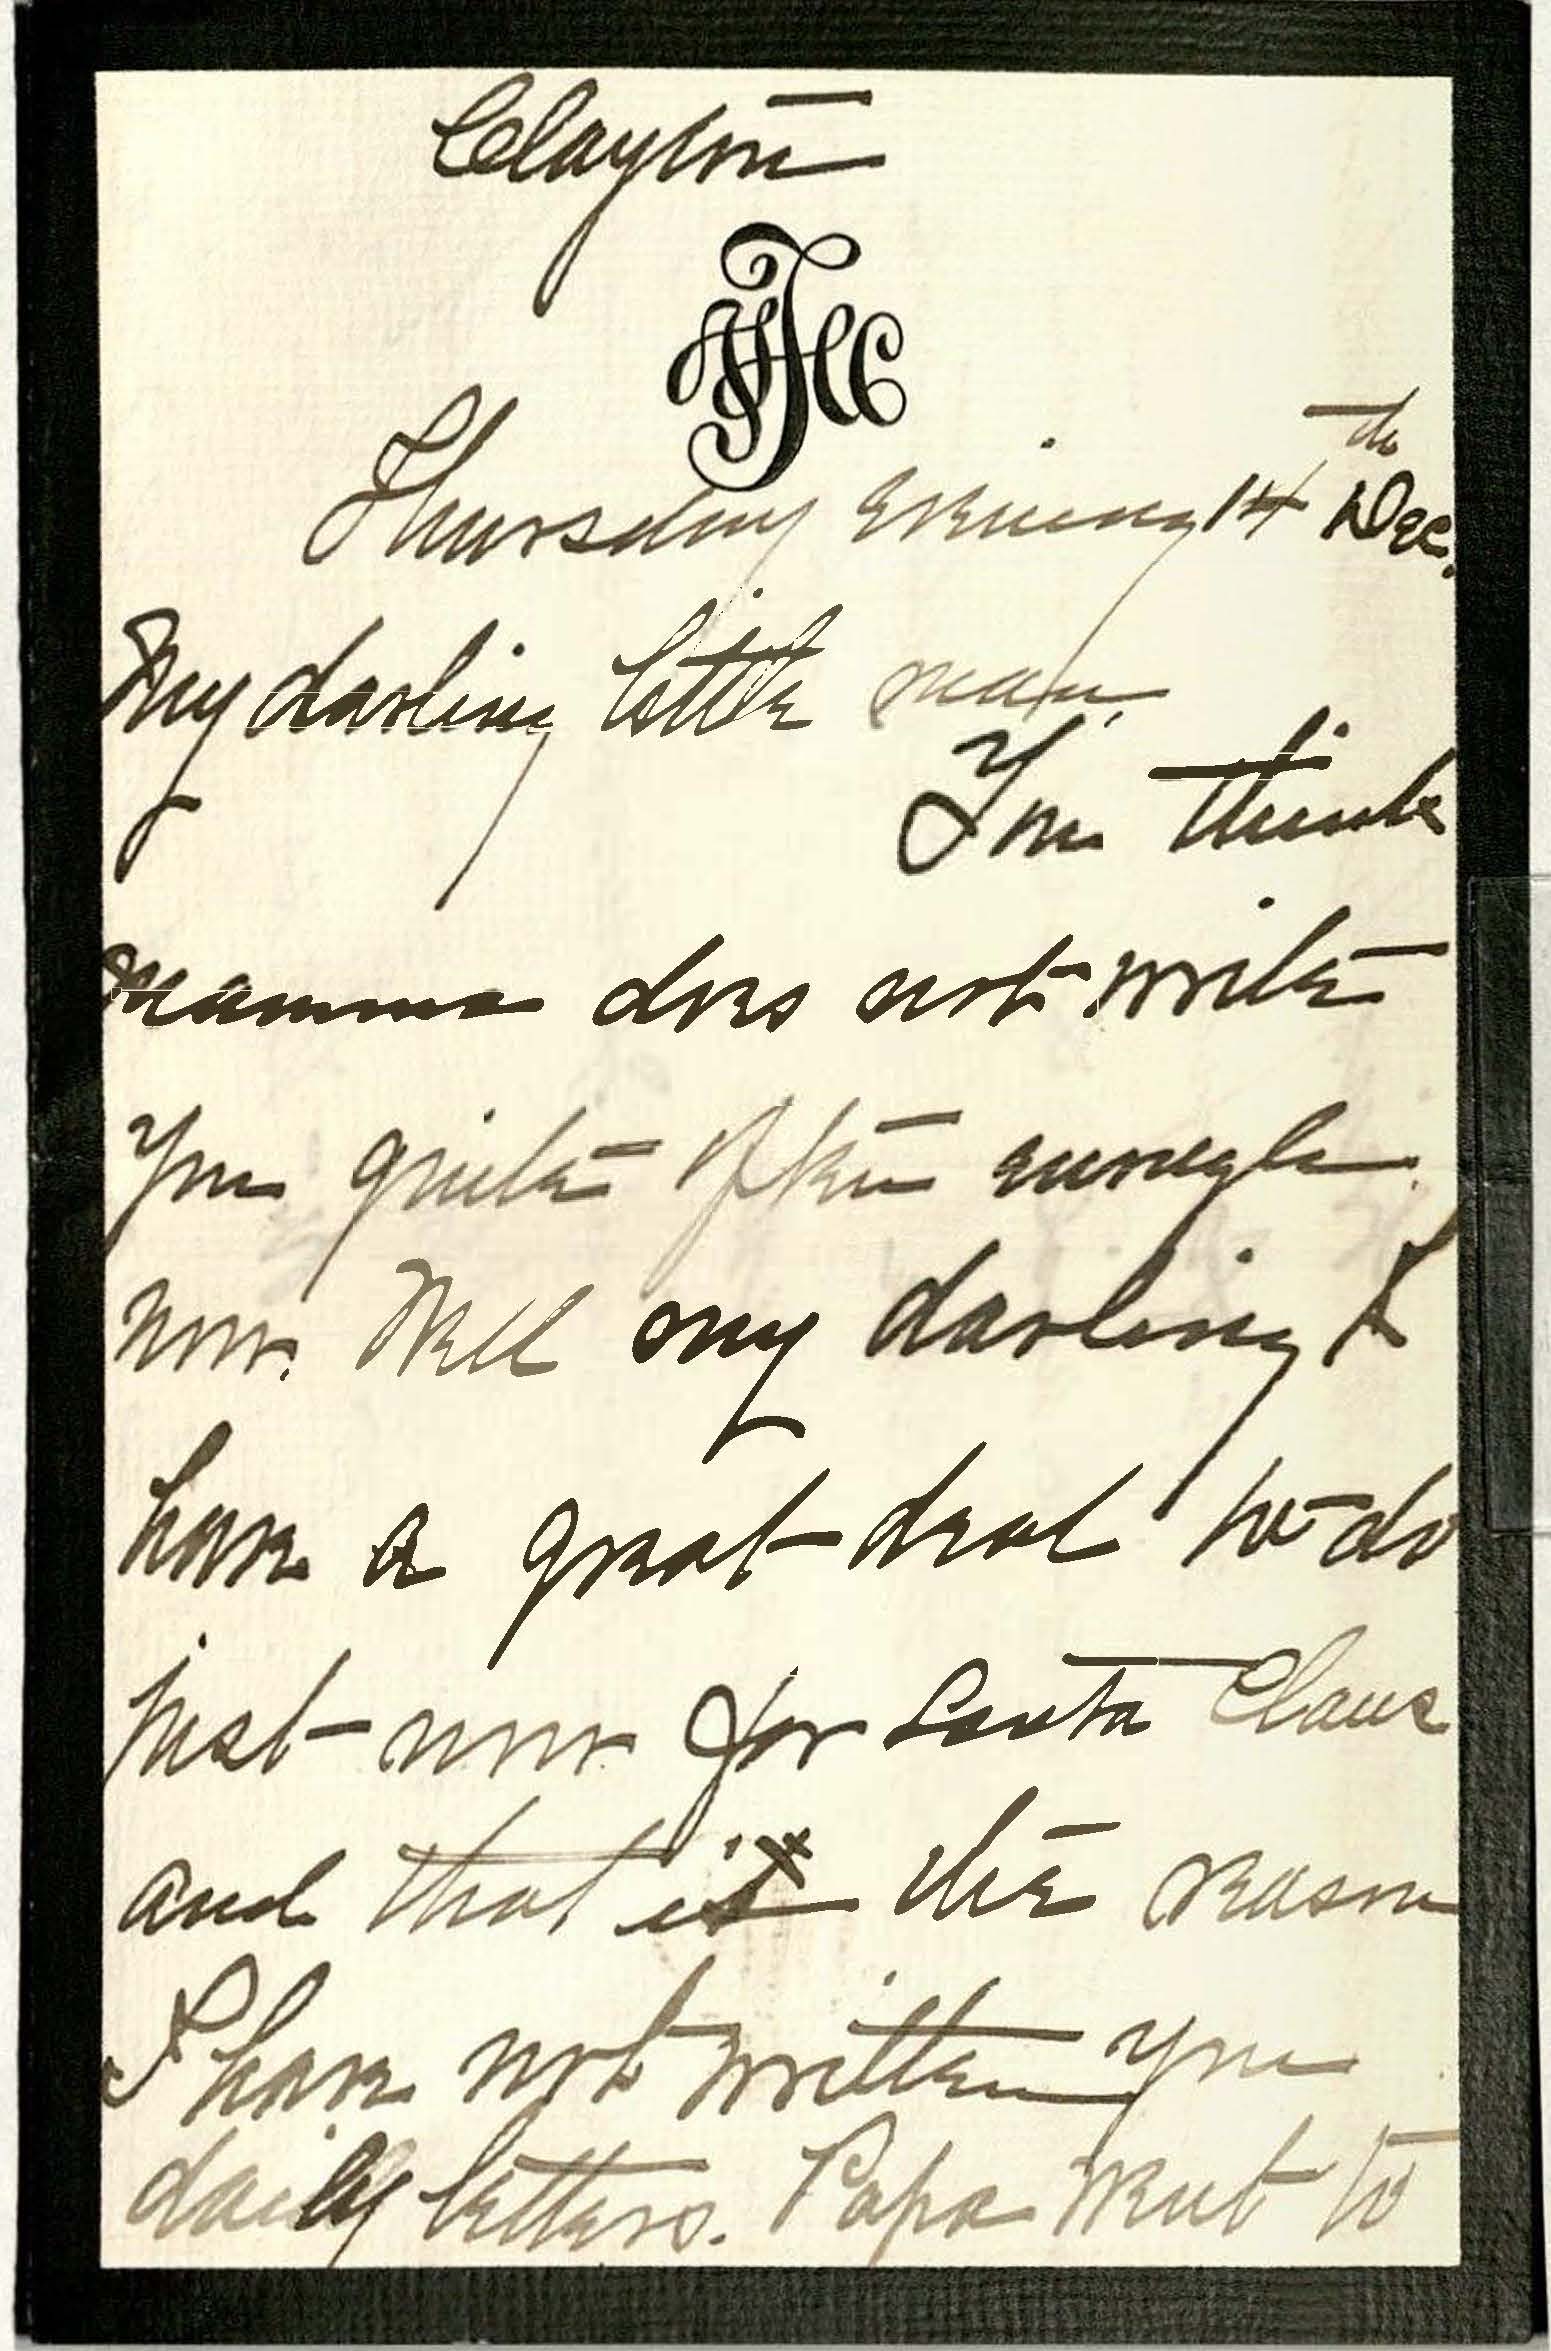 Clayton
Thursday evening 14th Dec.
My darling little man,
You think
mamma does not write
you quite often enough
now. Well my darling I
have a great deal to do
just now for Santa Claus
and that is the reason
I have not written you
daily letters. Papa went to